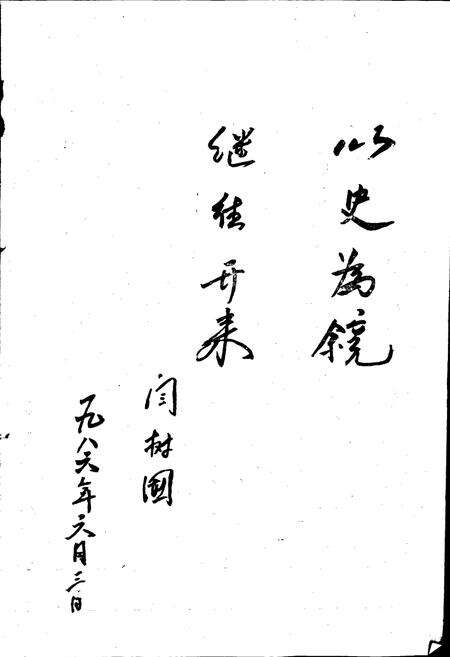 以史为镜
继往开来
闫树国
一九八六年六月三日